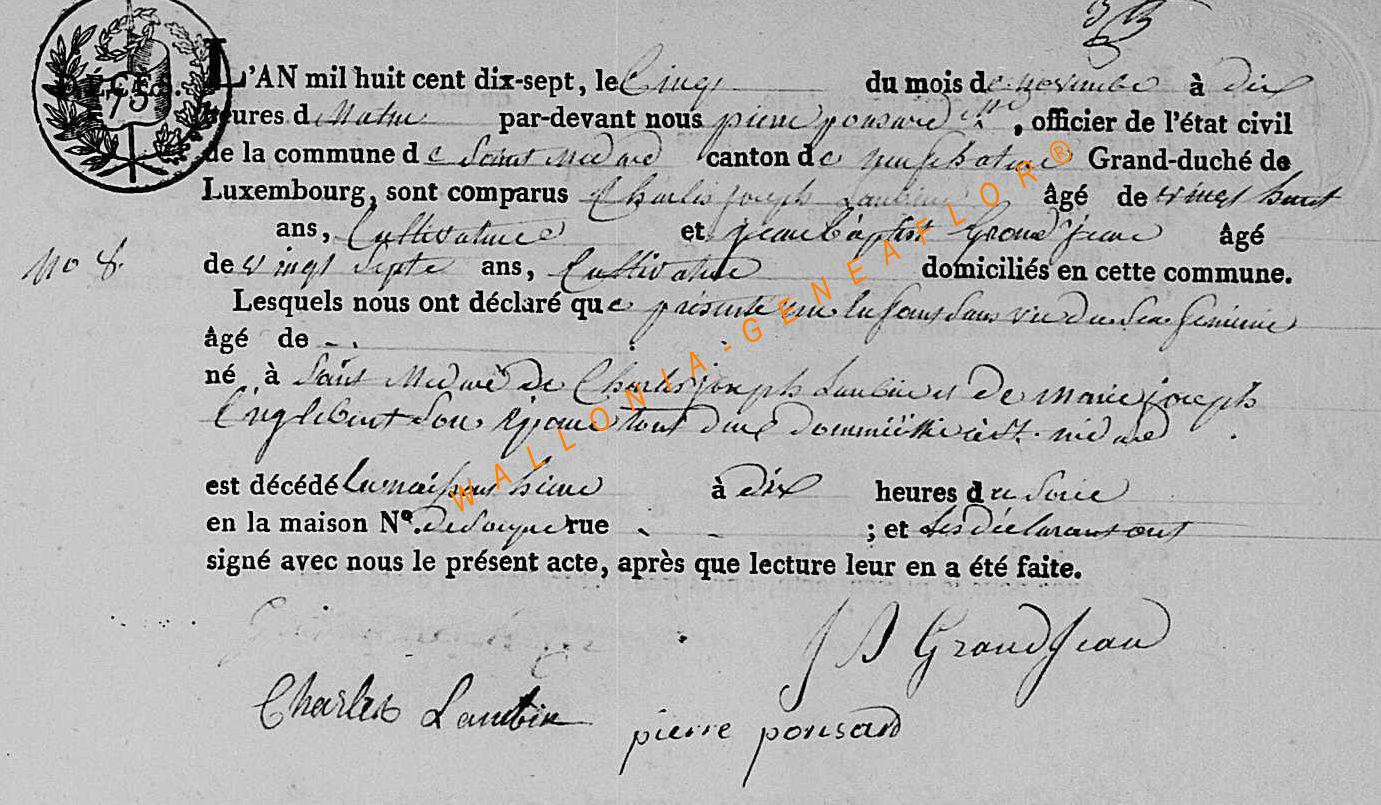 DÉCÈS.
75
L'AN mil huit cent dix-sept, le Cinq du mois de novembre à dix
heures du Matin par-devant nous pierre ponsard, officier de l'état civil
de la commune de Saint Medard canton de neufchateau Grand-duché de
Luxembourg, sont comparus Charles joseph Laubin âgé de vingt huit
ans, Cultivateure et jean baptist Grand jean âgé
No 8.
de vingt septe ans, Cultivateur domiciliés en cette commune.
Lesquels nous ont déclaré que présente un enfant sans vie du sex feminin
âgé de - .
né à Saint Medard de Charles joseph Laubin et de marie joseph
Englebert son epouse tout deux dommicilié a st. medard
est décédé hiere à dix heures du soire
en la maison Nº. rue ; et les déclarant ont
signé avec nous le présent acte, après que lecture leur en a été faite.
J B GrandJean
Charles Laubin
pierre ponsard
WALLONIA-GENEAFLOR®